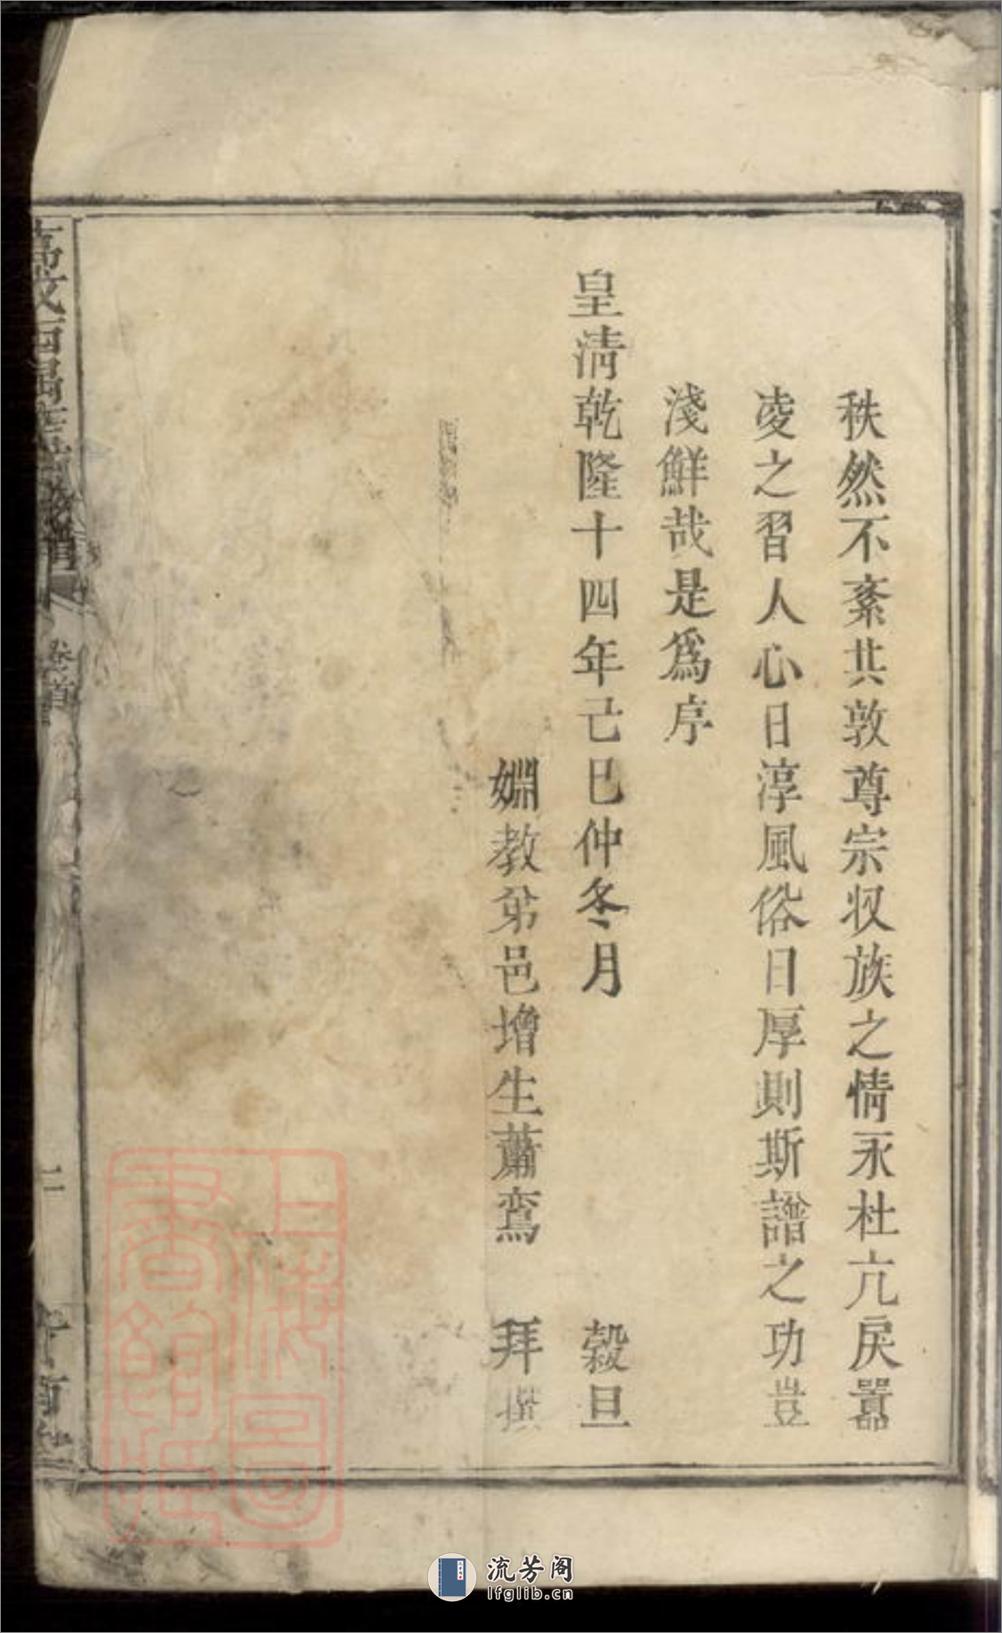 秩然不紊共敦尊宗収族之情永杜亢戾囂
凌之習人心日淳風俗日厚則斯譜之功豈
淺鮮哉是爲序
皇清乾隆十四年己巳仲冬月 穀旦
婣教弟邑增生蕭鸞 拜撰
卷首
二
上海圖書館藏
流芳阁
lfglib.cn